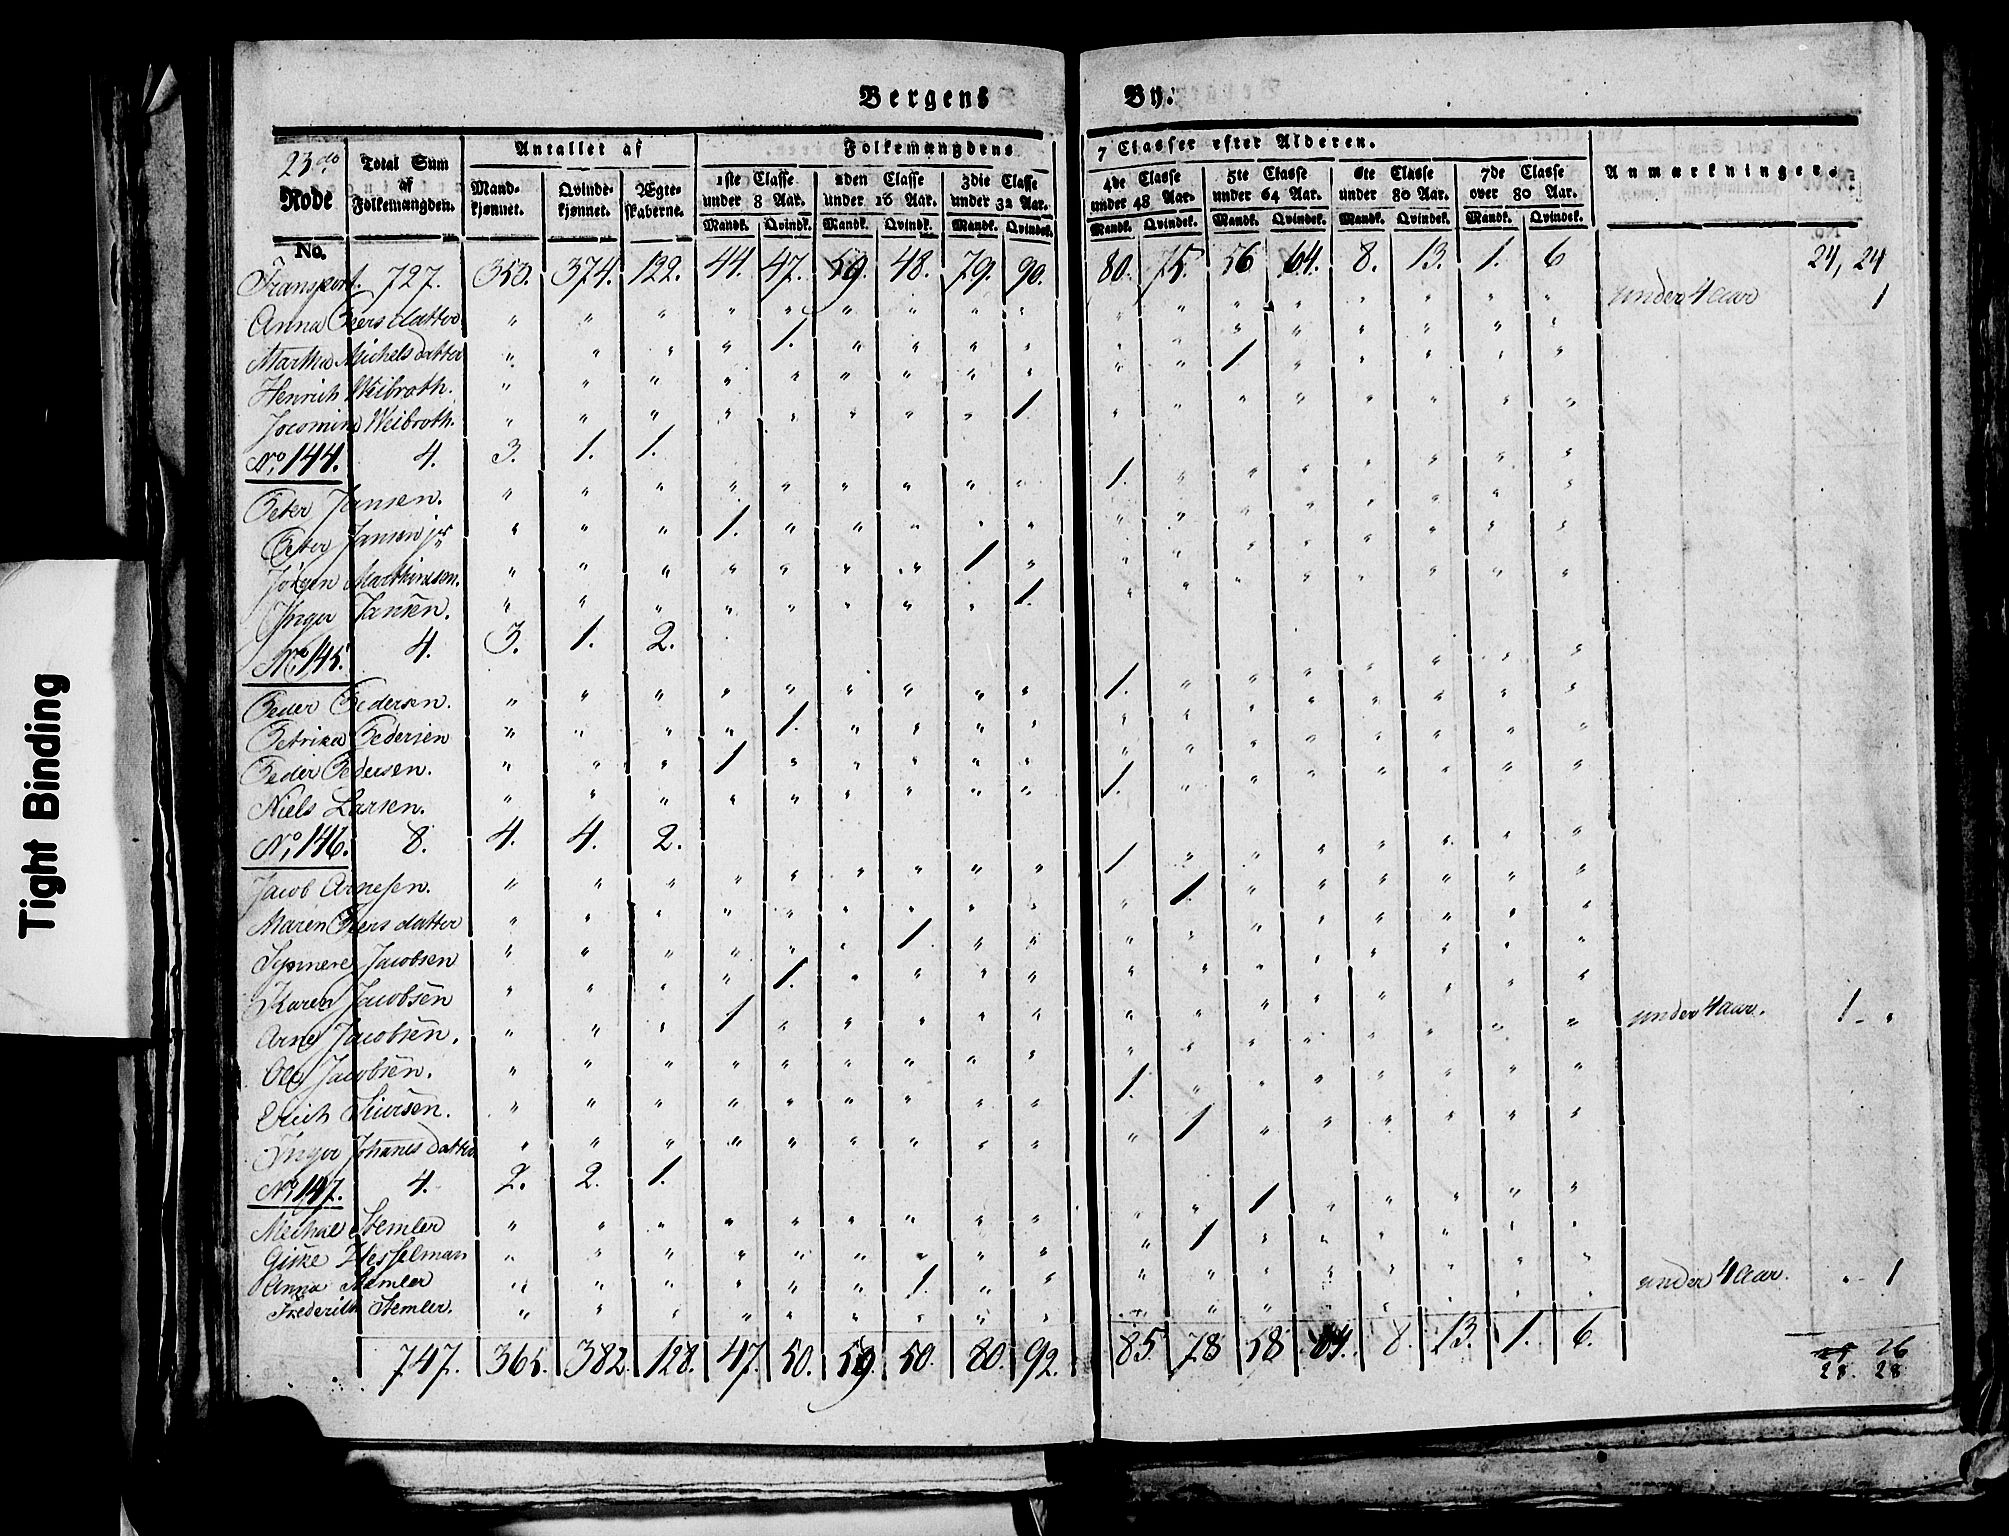 Bergens By.
23do Rode No. | Total Sum af Folkemængden. | Antallet af Mandkjønnet. | Qvindekjønnet. | Ægteskaberne. | Folkemængdens 7 Classer efter Alderen. | Anmærkninger.
1ste Classe under 8 Aar. | 2den Classe under 16 Aar. | 3die Classe under 32 Aar. | 4de Classe under 48 Aar. | 5te Classe under 64 Aar. | 6te Classe under 80 Aar. | 7de Classe over 80 Aar.
Mandk. Qvindk. Mandk. Qvindk. Mandk. Qvindek. Mandk. Qvindek. Mandk. Qvindek. Mandk. Qvindek. Mandk. Qvindek.
Transport. 727. 353. 374. 122. 44. 47. 59. 48. 79. 90. 80. 75. 56 64. 8. 13. 1. 6 24, 24
Anna Peersdatter " " " " " " " " " " " " " " " " " under 4 aar 1
Martha Michelsdatter " " " " 1. " " " " " " " " " " " "
Henrich Weibroth. " " " " " " " " " " " 1 " " " " "
Jocomina Weibroth. " " " " " " " " 1 " " " " " " " "
No. 144. 4. 3. 1. 1.
Peter Jansen. " " " " " " " " " 1. " " " " " " "
Peter Jansen jr " " " 1. " " " " " " " " " " " " "
Jörgen Marthinsen. " " " " " " " 1 " " " " " " " " "
Inger Jansen. " " " " " " " " 1. " " " " " " " "
No. 145. 4. 3. 1. 2.
Peder Pedersen. " " " " " " " " " 1. " " " " " " "
Petrika Pedersen " " " " 1. " " " " " " " " " " " "
Peder Pedersen. " " " 1 " " " " " " " " " " " " "
Niels Larsen. " " " " " " " " " 1. " " " " " " "
No. 146. 8. 4. 4. 2.
Jacob Arnesen. " " " " " " " " " 1 " " " " " " "
Maren Peersdatter " " " " " " " " " " 1 " " " " " "
Synneve Jacobsen " " " " " " 1 " " " " " " " " " "
Karen Jacobsen " " " " 1. " " " " " " " " " " " "
Arne Jacobsen. " " " 1 " " " " " " " " " " " " "
Ole Jacobsen. " " " " " " " " " " " " " " " " " under 4 aar. 1 - "
Erich Siursen. " " " " " " " " " 1. " " " " " " "
Inger Johannesdatter " " " " " " " " " " 1 " " " " " "
No. 147. 4. 2. 2. 1.
Michael Stemler " " " " " " " " " " " 1 " " " " "
Giske Hesselman " " " " " " " " " " 1 " " " " " "
Anna Stemler " " " " " " 1. " " " " " " " " " "
Frederikke Stemler. " " " " " " " " " " " " " " " " " under 4 Aar. " - 1
747. 365. 382. 128. 47. 50. 59. 50. 80. 92. 85. 78 58 64. 8. 13. 1. 6. 26
28. 28
Tight Binding